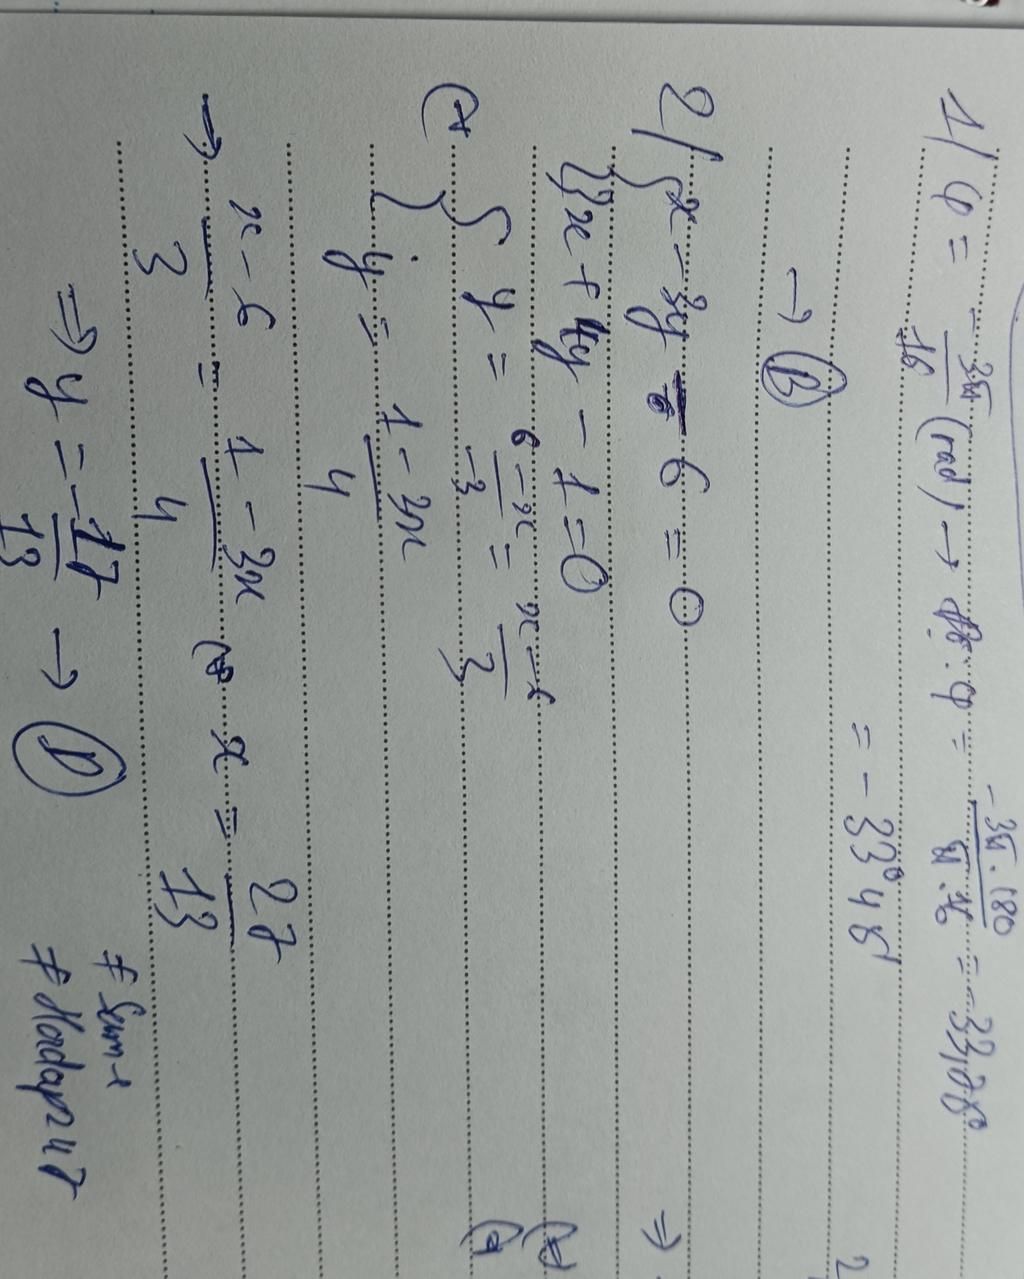 1/ φ = -3π/16 (rad) → đổi: φ = -3π.180/π.16 = -33,75°
= -33°45'
→ B
2/ { x - 3y - 6 = 0
{ 3x + 4y - 1 = 0
{ y = 6-x/-3 = x-6/3
{ y = 1-3x/4
→ x-6/3 = 1-3x/4 x = 27/13
⇒ y = -17/13 → D
#Hoidap247